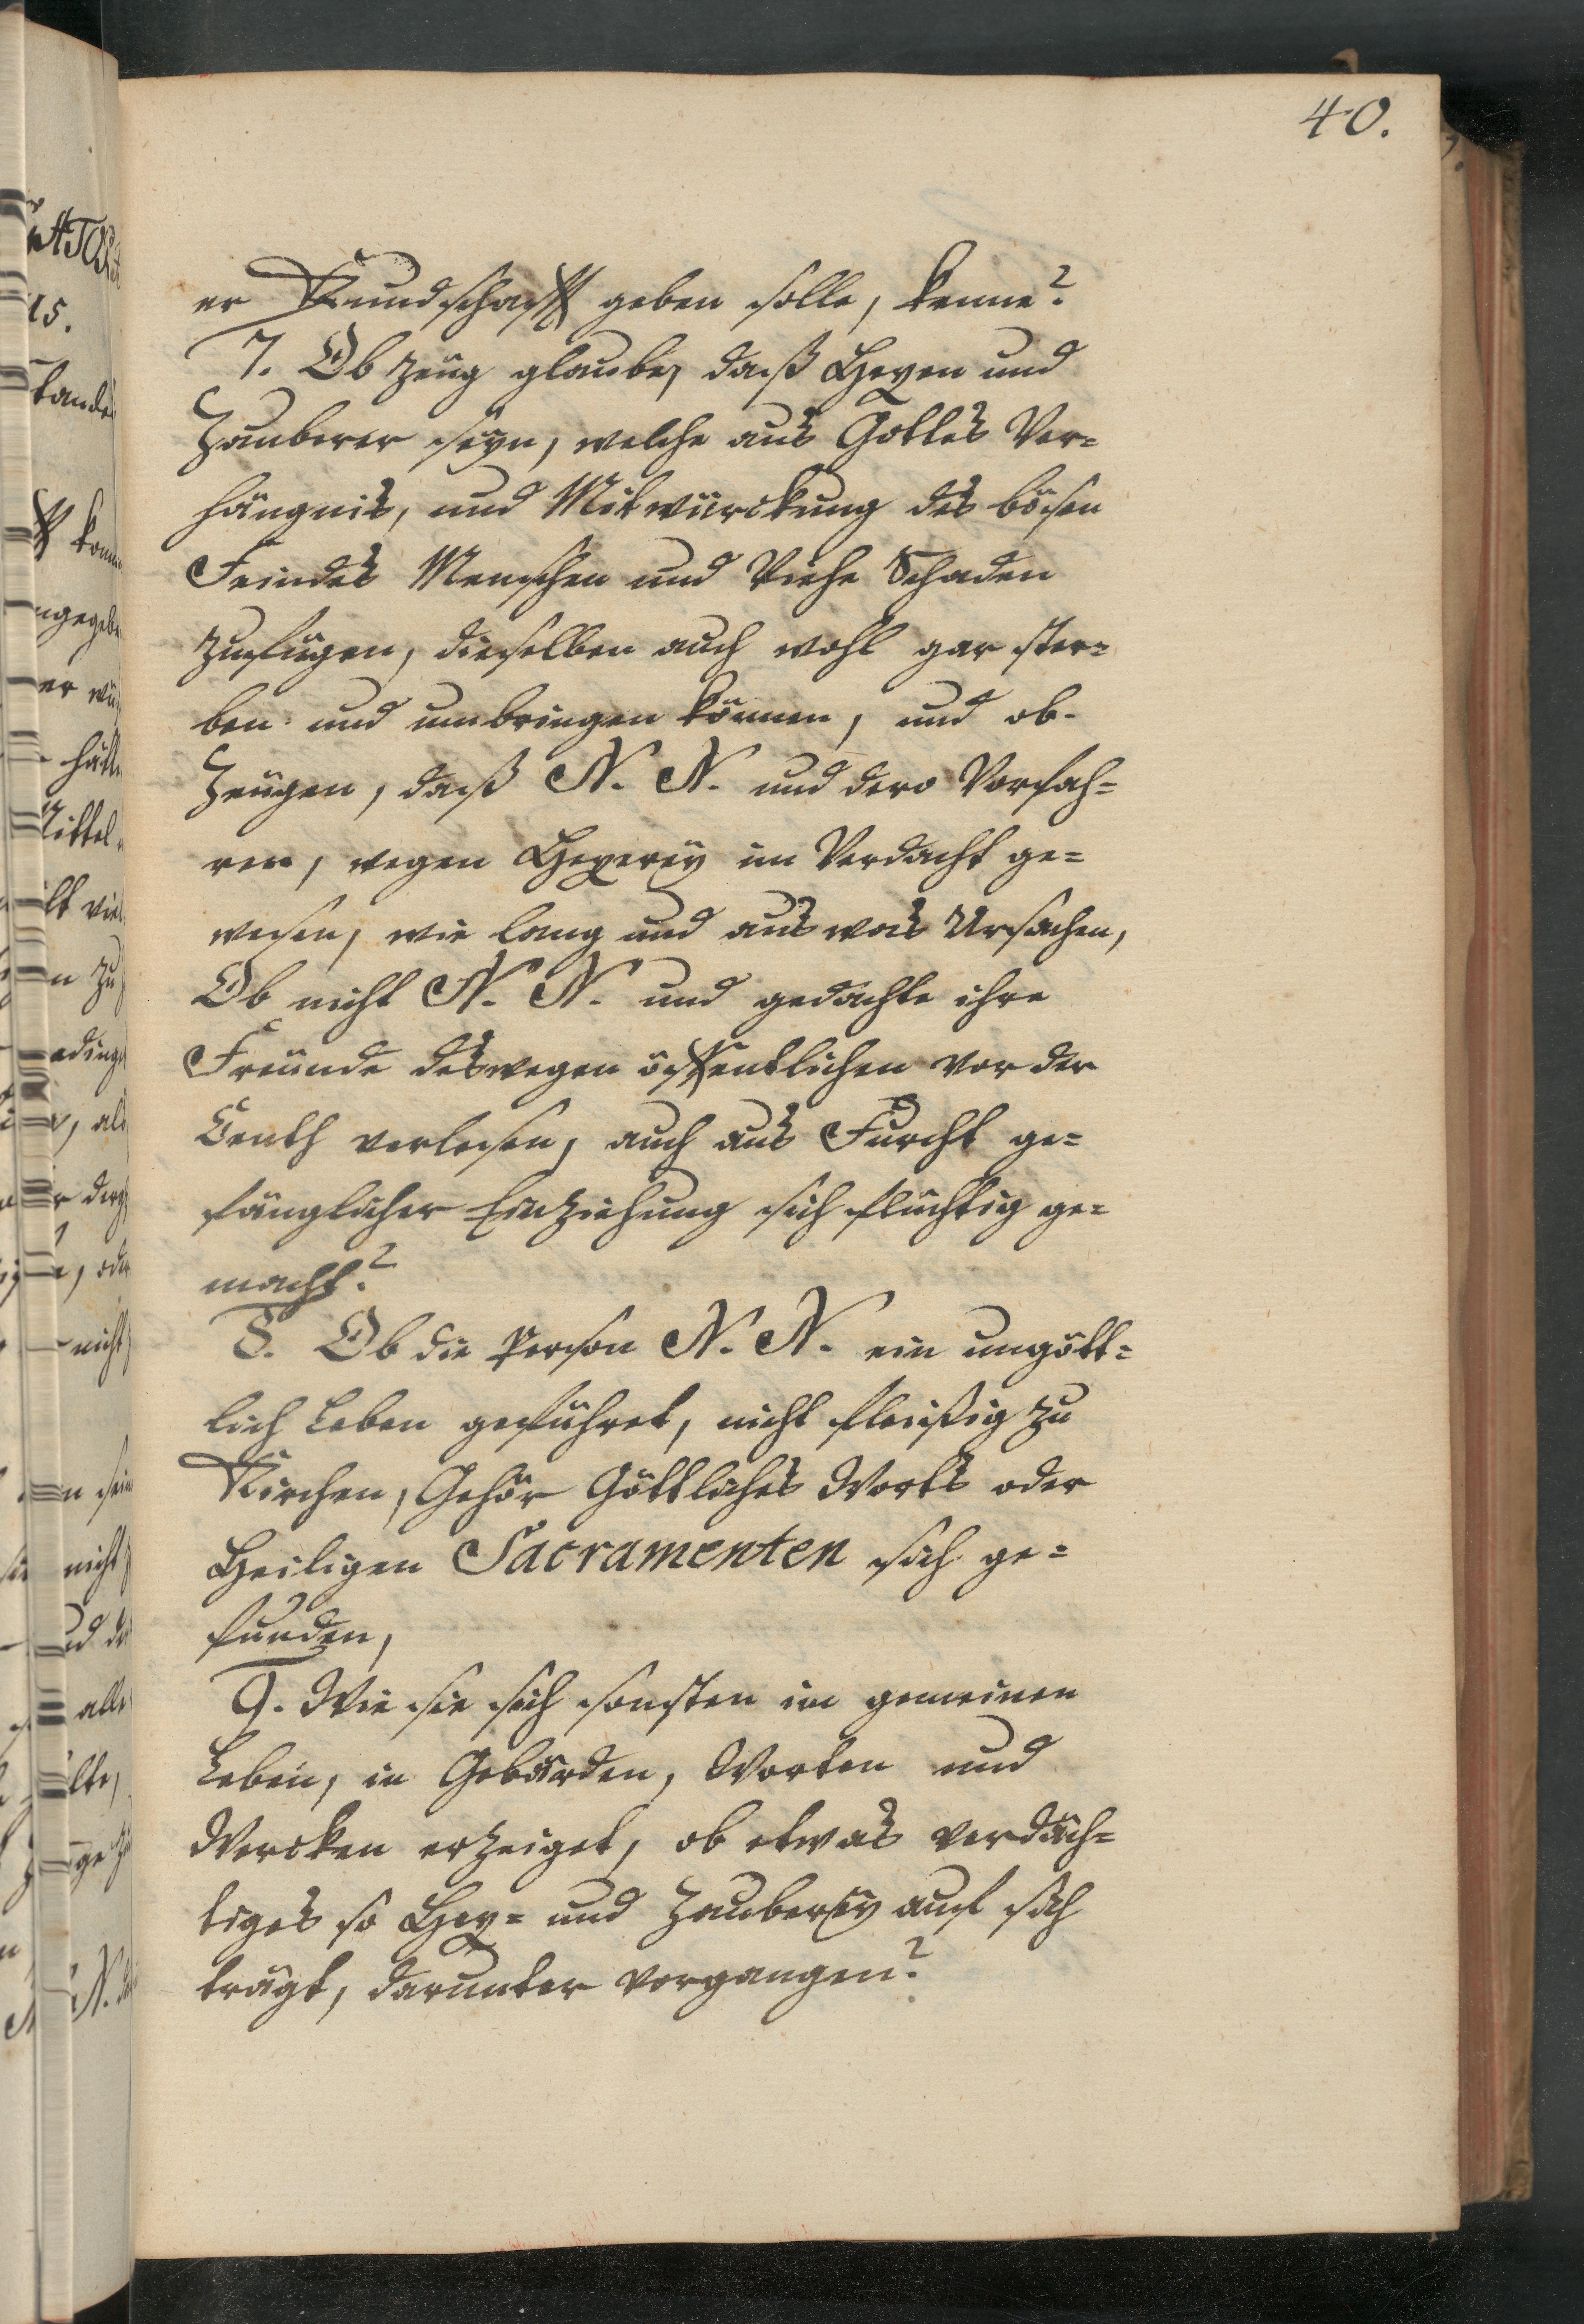 40.
er Kundschafft geben solle, kenne?
7. Ob Zeüg glaube, daß Hexen und
Zauberer seyn, welche aus Gottes Ver=
hängnis, und Mitwürckung des bösen
Feindes Menschen und Viehe Schaden
zufügen, dieselben auch wohl gar ster=
ben und umbringen können, und ob
Zeügen, daß N. N. und dero Vorfah=
ren, wegen Hexerey im Verdacht ge=
wesen, wie lang und aus was Ursachen,
Ob nicht N. N. und gedachte ihre
Freünde deswegen öffentlichen vor der
Centh verlesen, auch aus Furcht ge=
fänglicher Einziehung sich flüchtig ge=
macht?
8. Ob die Person N. N. ein ungött=
lich Leben geführet, nicht fleißig zu
Kirchen, Gehör Göttliches Worts oder
Heiligen Sacramenten sich ge=
funden,
9. Wie sie sich sonsten im gemeinen
Leben, in Gebärden, Worten und
Wercken erzeiget, ob etwas verdäch=
tiges so Hex= und Zauberey auf sich
trägt, darunter vorgangen?